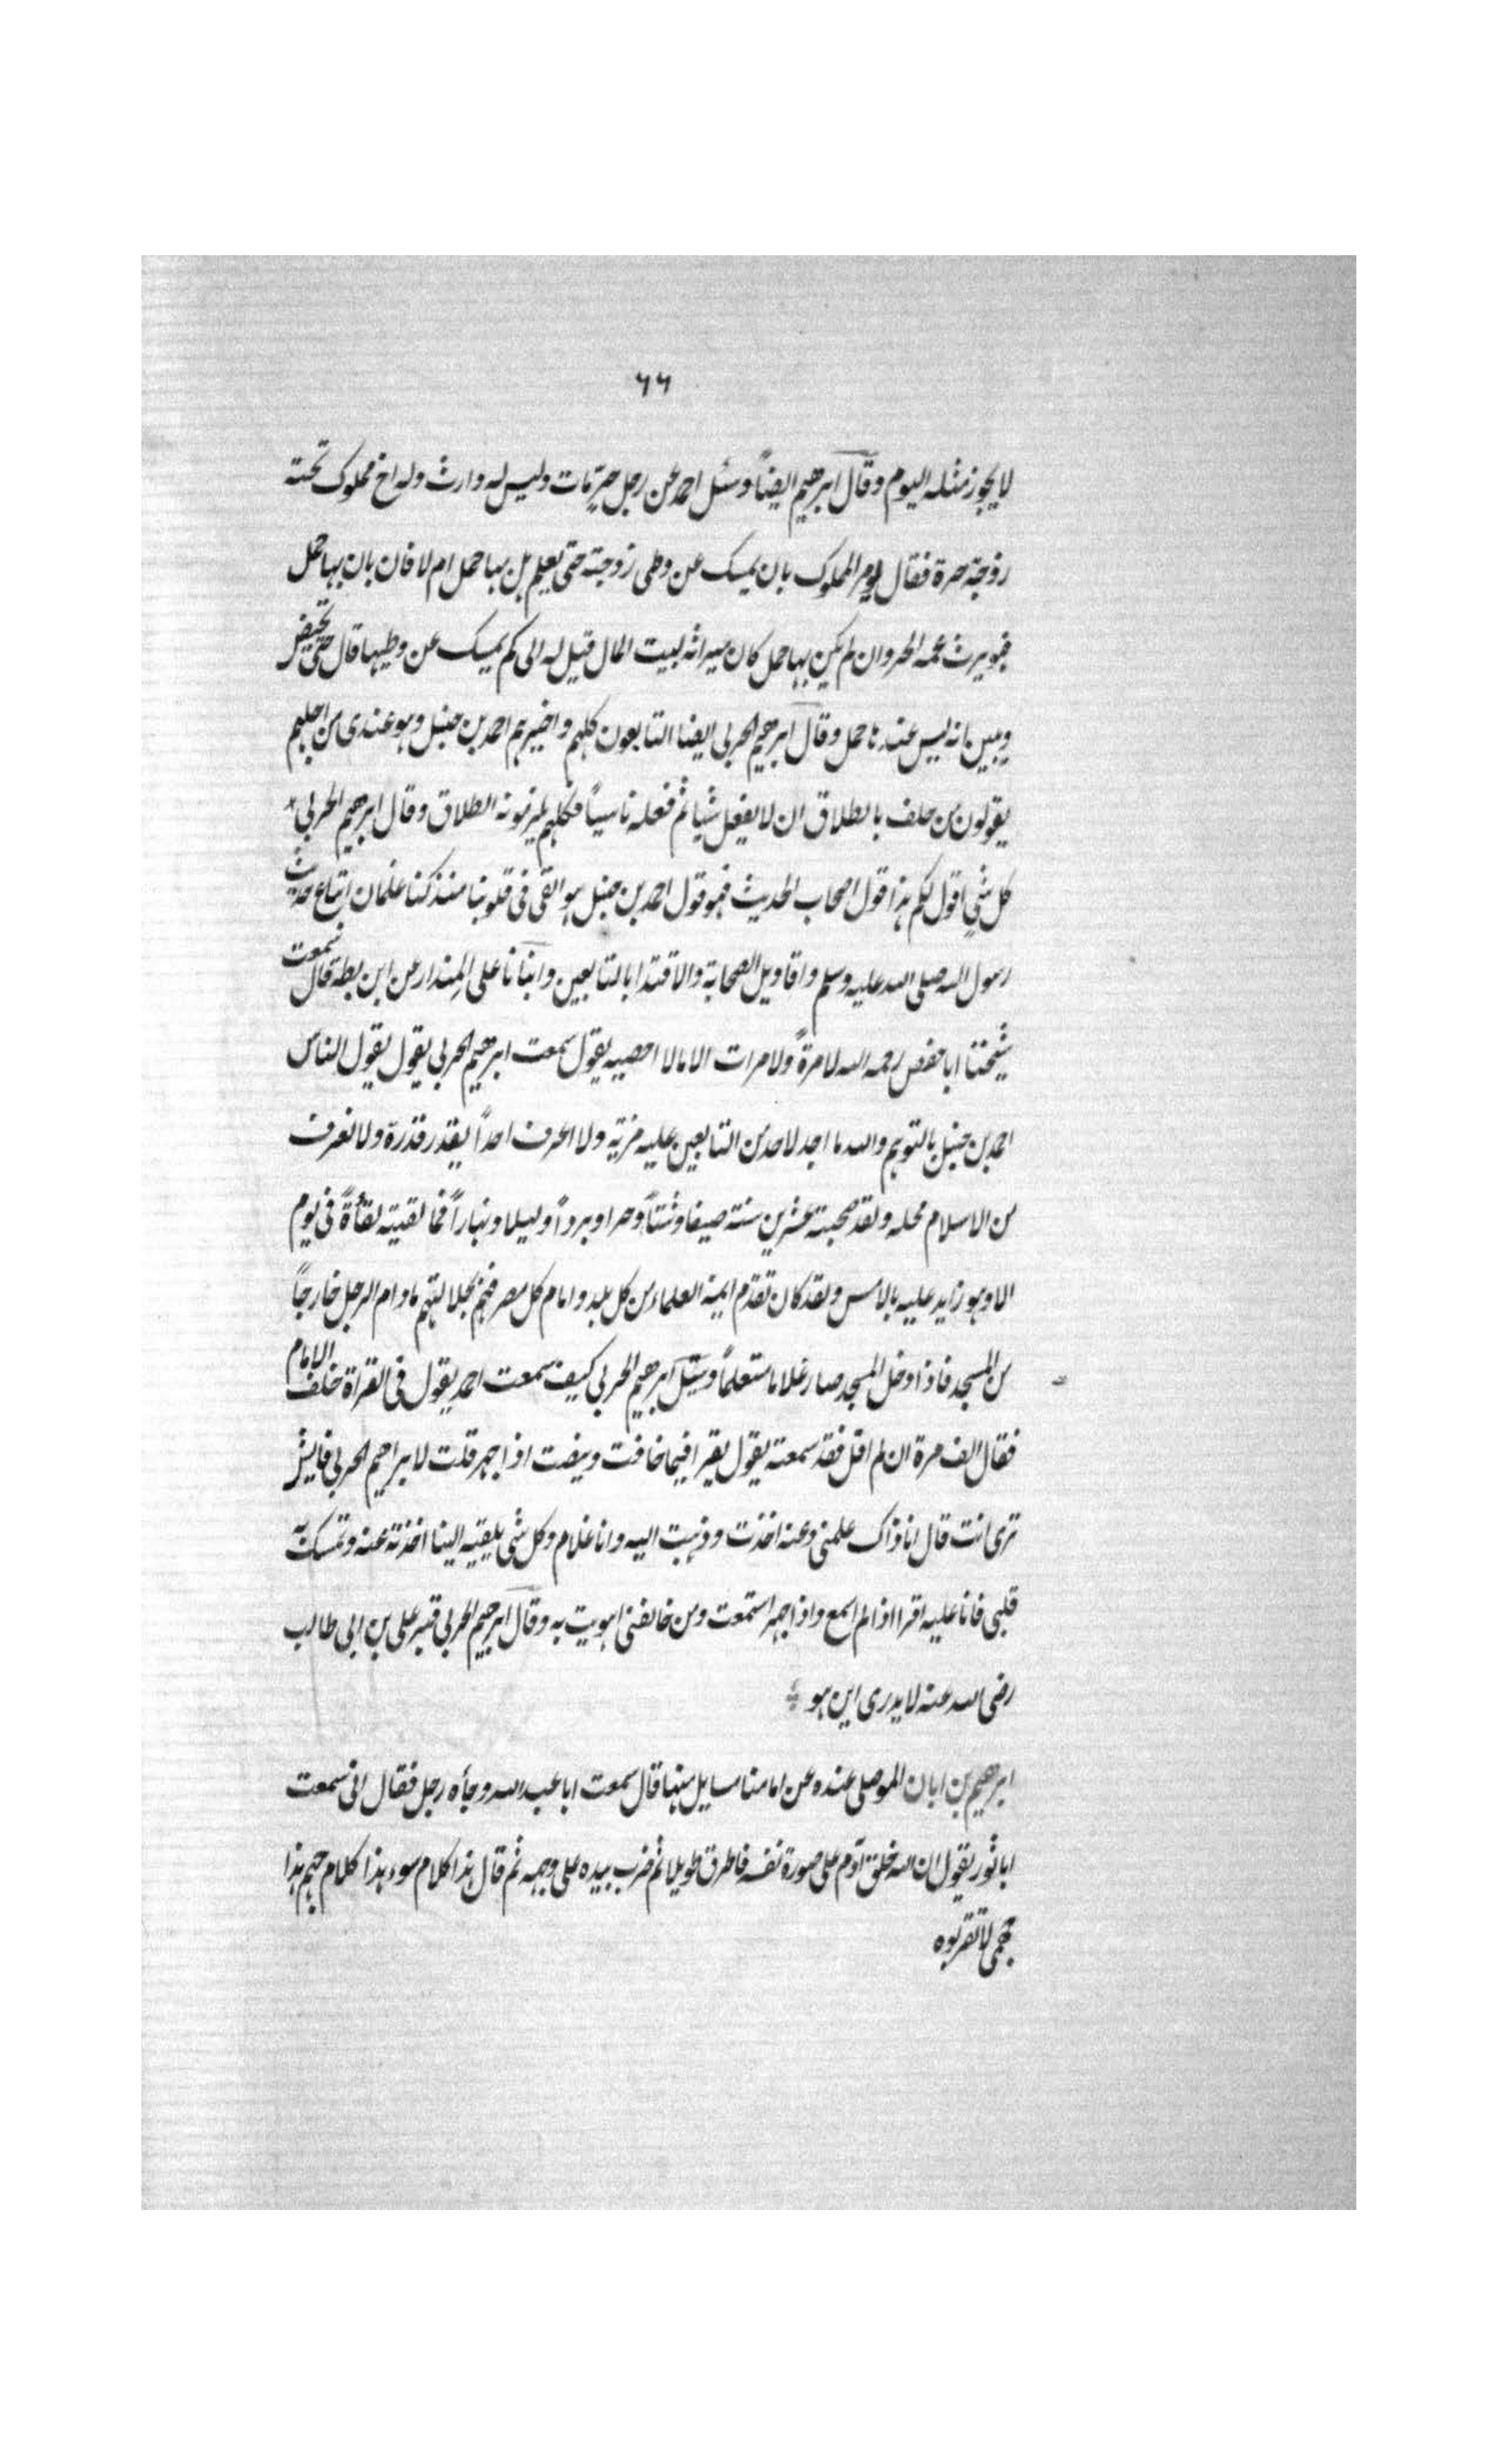 ٦٦
لا يجوز مثله اليوم وقال ابرهيم ايضاً وسئل احمد عن رجل حرٍ مات وليس له وارث وله اخ مملوك تحته
زوجة حرة فقال يومر المملوك بان يمسك عن وطى زوجته حتى يعلم هل بها حمل ام لا فان بان بها حمل
فهو يرث عمه الحر وان لم يكن بها حمل كان ميراثه لبيت المال قيل له الى كم يمسك عن وطيها قال حتى تحيض
ويبين بانه ليس عندها حمل وقال ابرهيم الحربى ايضا التابعون كلهم واخيرهم احمد بن حنبل وهو عندى من اجلهم
يقولون من حلف بالطلاق ان لا يفعل شيا ثم فعله ناسياً فكلهم يلزمونه الطلاق وقال ابرهيم الحربى
كل شىٍ اقول لكم هذا قول اصحاب الحديث فهو قول احمد بن حنبل هو القى فى قلوبنا منذ كنا غلمان اتباع حديث
رسول الله صلى الله عليه وسلم واقاويل الصحابة والاقتدا بالتابعين وانبانا على المندار عن ابن بطه قال سمعت
شيختا ابا حفص رحمه الله لا مرةً ولا مرات الا مالا احصيه يقول سمعت ابرهيم الحربى يقول يقول الناس
احمد بن حنبل بالتوهم والله ما اجد لاحد من التابعين عليه مزية ولا اعرف احداً يقدر قدرة ولا نعرف
من الاسلام محله ولقد صحبته عشرين سنة صيفا وشتاً وحرا وبرداً وليلا ونهاراً فما لقيته لقأة فى يوم
الا وهو زايد عليه بالامس ولقد كان تقدم ايمة العلماء من كل بلد وامام كل مصر فهم بجلالتهم مادام الرجل خارجاً
من المسجد فاذا دخل المسجد صار غلاما متعلماً وسئل ابرهيم الحربى كيف سمعت احمد يقول فى القراة خلف الامام
فقال الف مرة ان لم اقل فقد سمعته يقول يقرا فيما خافت وينصت اذا جهر قلت لابراهيم الحربى فايش
ترى انت قال انا ذاك علمنى وعنه اخذت وذهبت اليه وانا غلام وكل شى يلقيه الينا اخذته عنه وتمسك به
قلبى فانا عليه اقرا اذا لم اسمع واذا جهر استمعت ومن خالفنى اهويت به وقال ابرهيم الحربى قبر على بن ابى طالب
رضى الله عنه لا يدرى اين هو
ابرهيم بن ابان الموصلى عنده عن امامنا مسايل منها قال سمعت ابا عبد الله وجأه رجل فقال انى سمعت
ابا ثور يقول ان الله خلق آدم على صورة نفسه فاطرق طويلا ثم ضرب بيده على وجهه ثم قال هذا كلام سوء هذا كلام جهم هذا
جهمى لا تقربوه